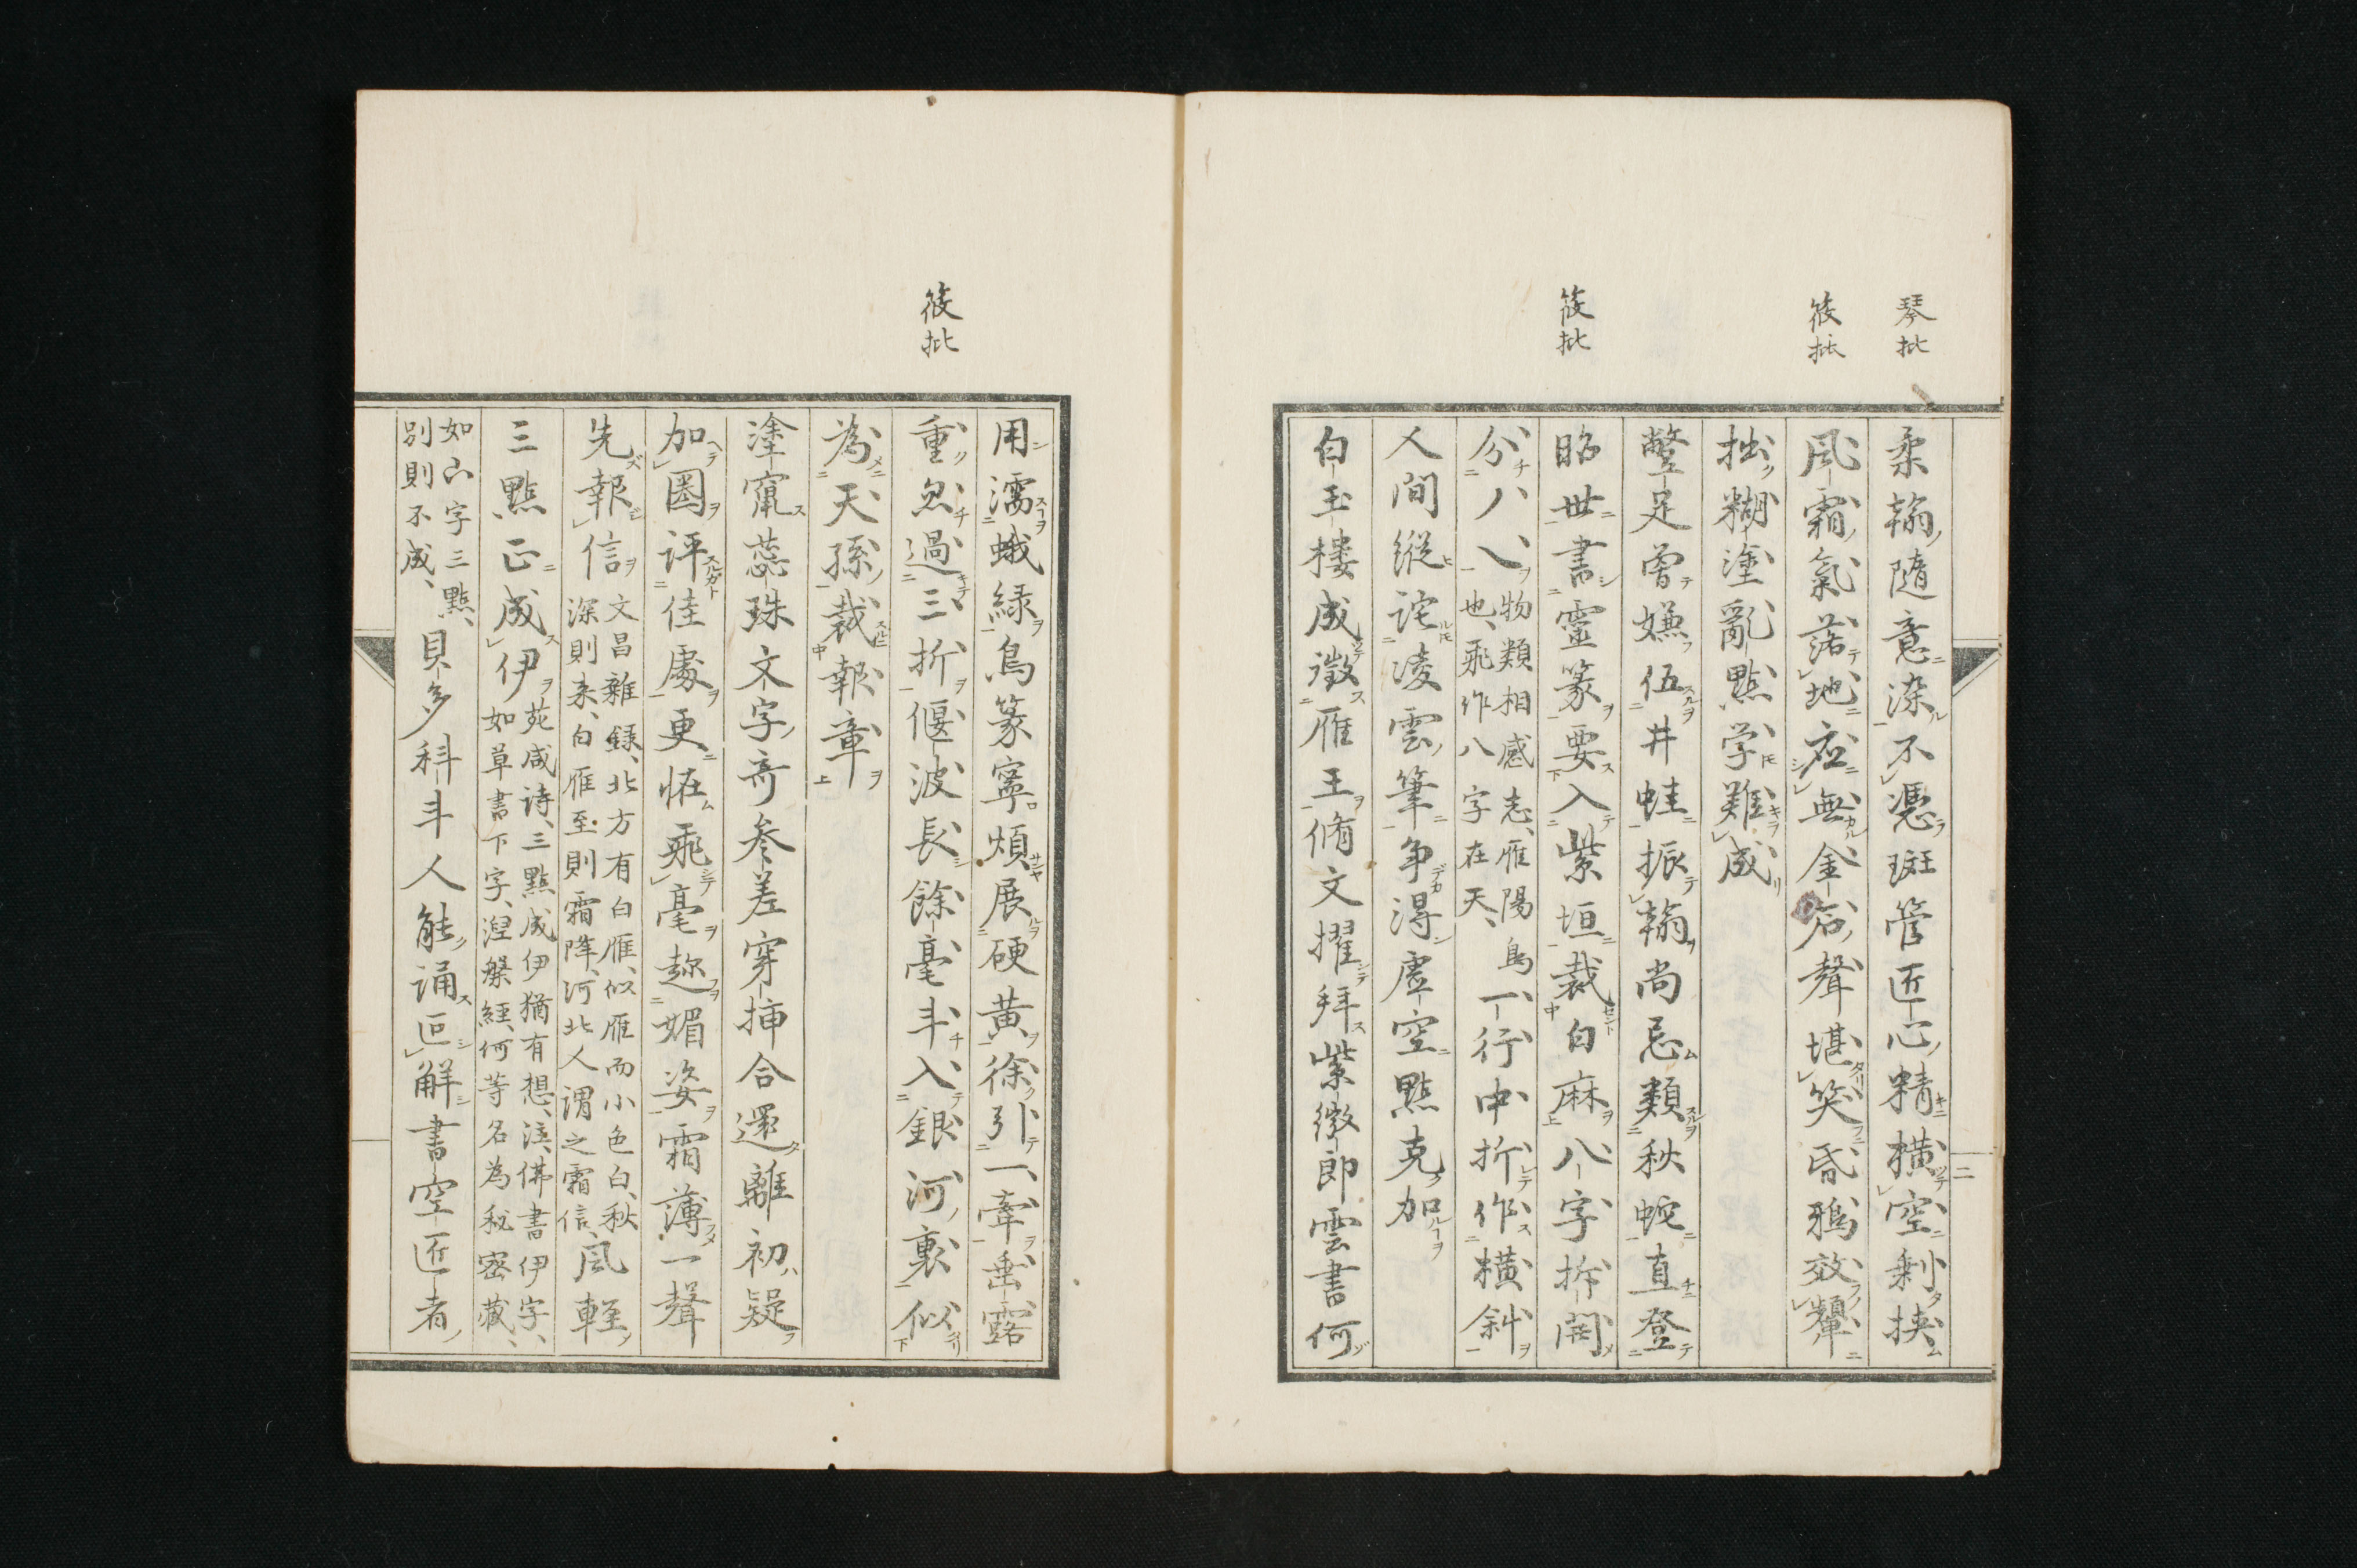 琴批
筱批
筱批
柔翰隨意染不憑斑管匠心精橫空剩挾
風霜氣落地应無金石聲堪笑昏鴉效顰
拙糊塗亂點学難成
蹩足曾嫌伍井蛙振翰尚忌類秋蛇直登
昭世書靈篆要入紫垣裁白麻八字拆開
分八乀
物類相感志、雁陽鳥
也、飛作八字在天、
一行中折作橫斜
人間縱詫凌雲筆争得虛空點克加
白玉樓成徵雁王脩文擢拜紫微郎雲書何
二
筱批
用濡蛾緑鳥篆寧煩展硬黃徐引一牽垂露
重忽過三折偃波長餘毫斗入銀河裏似
為天孫裁報章
塗竄蕊珠文字奇參差穿揷合還離初疑
加圈評佳處更恠飛毫趂媚姿霜薄一聲
先報信
文昌雜録、北方有白雁、似雁而小色白、秋
深則来、白雁至則霜降、河北人謂之霜信、
風輕
三點正成伊
苑咸詩、三點成伊猶有想、注、佛書伊字、
如草書下字、涅槃經、何等名為秘密藏、
如𠆢字三點、
別則不成、
貝多科斗人能誦叵解書空匠者